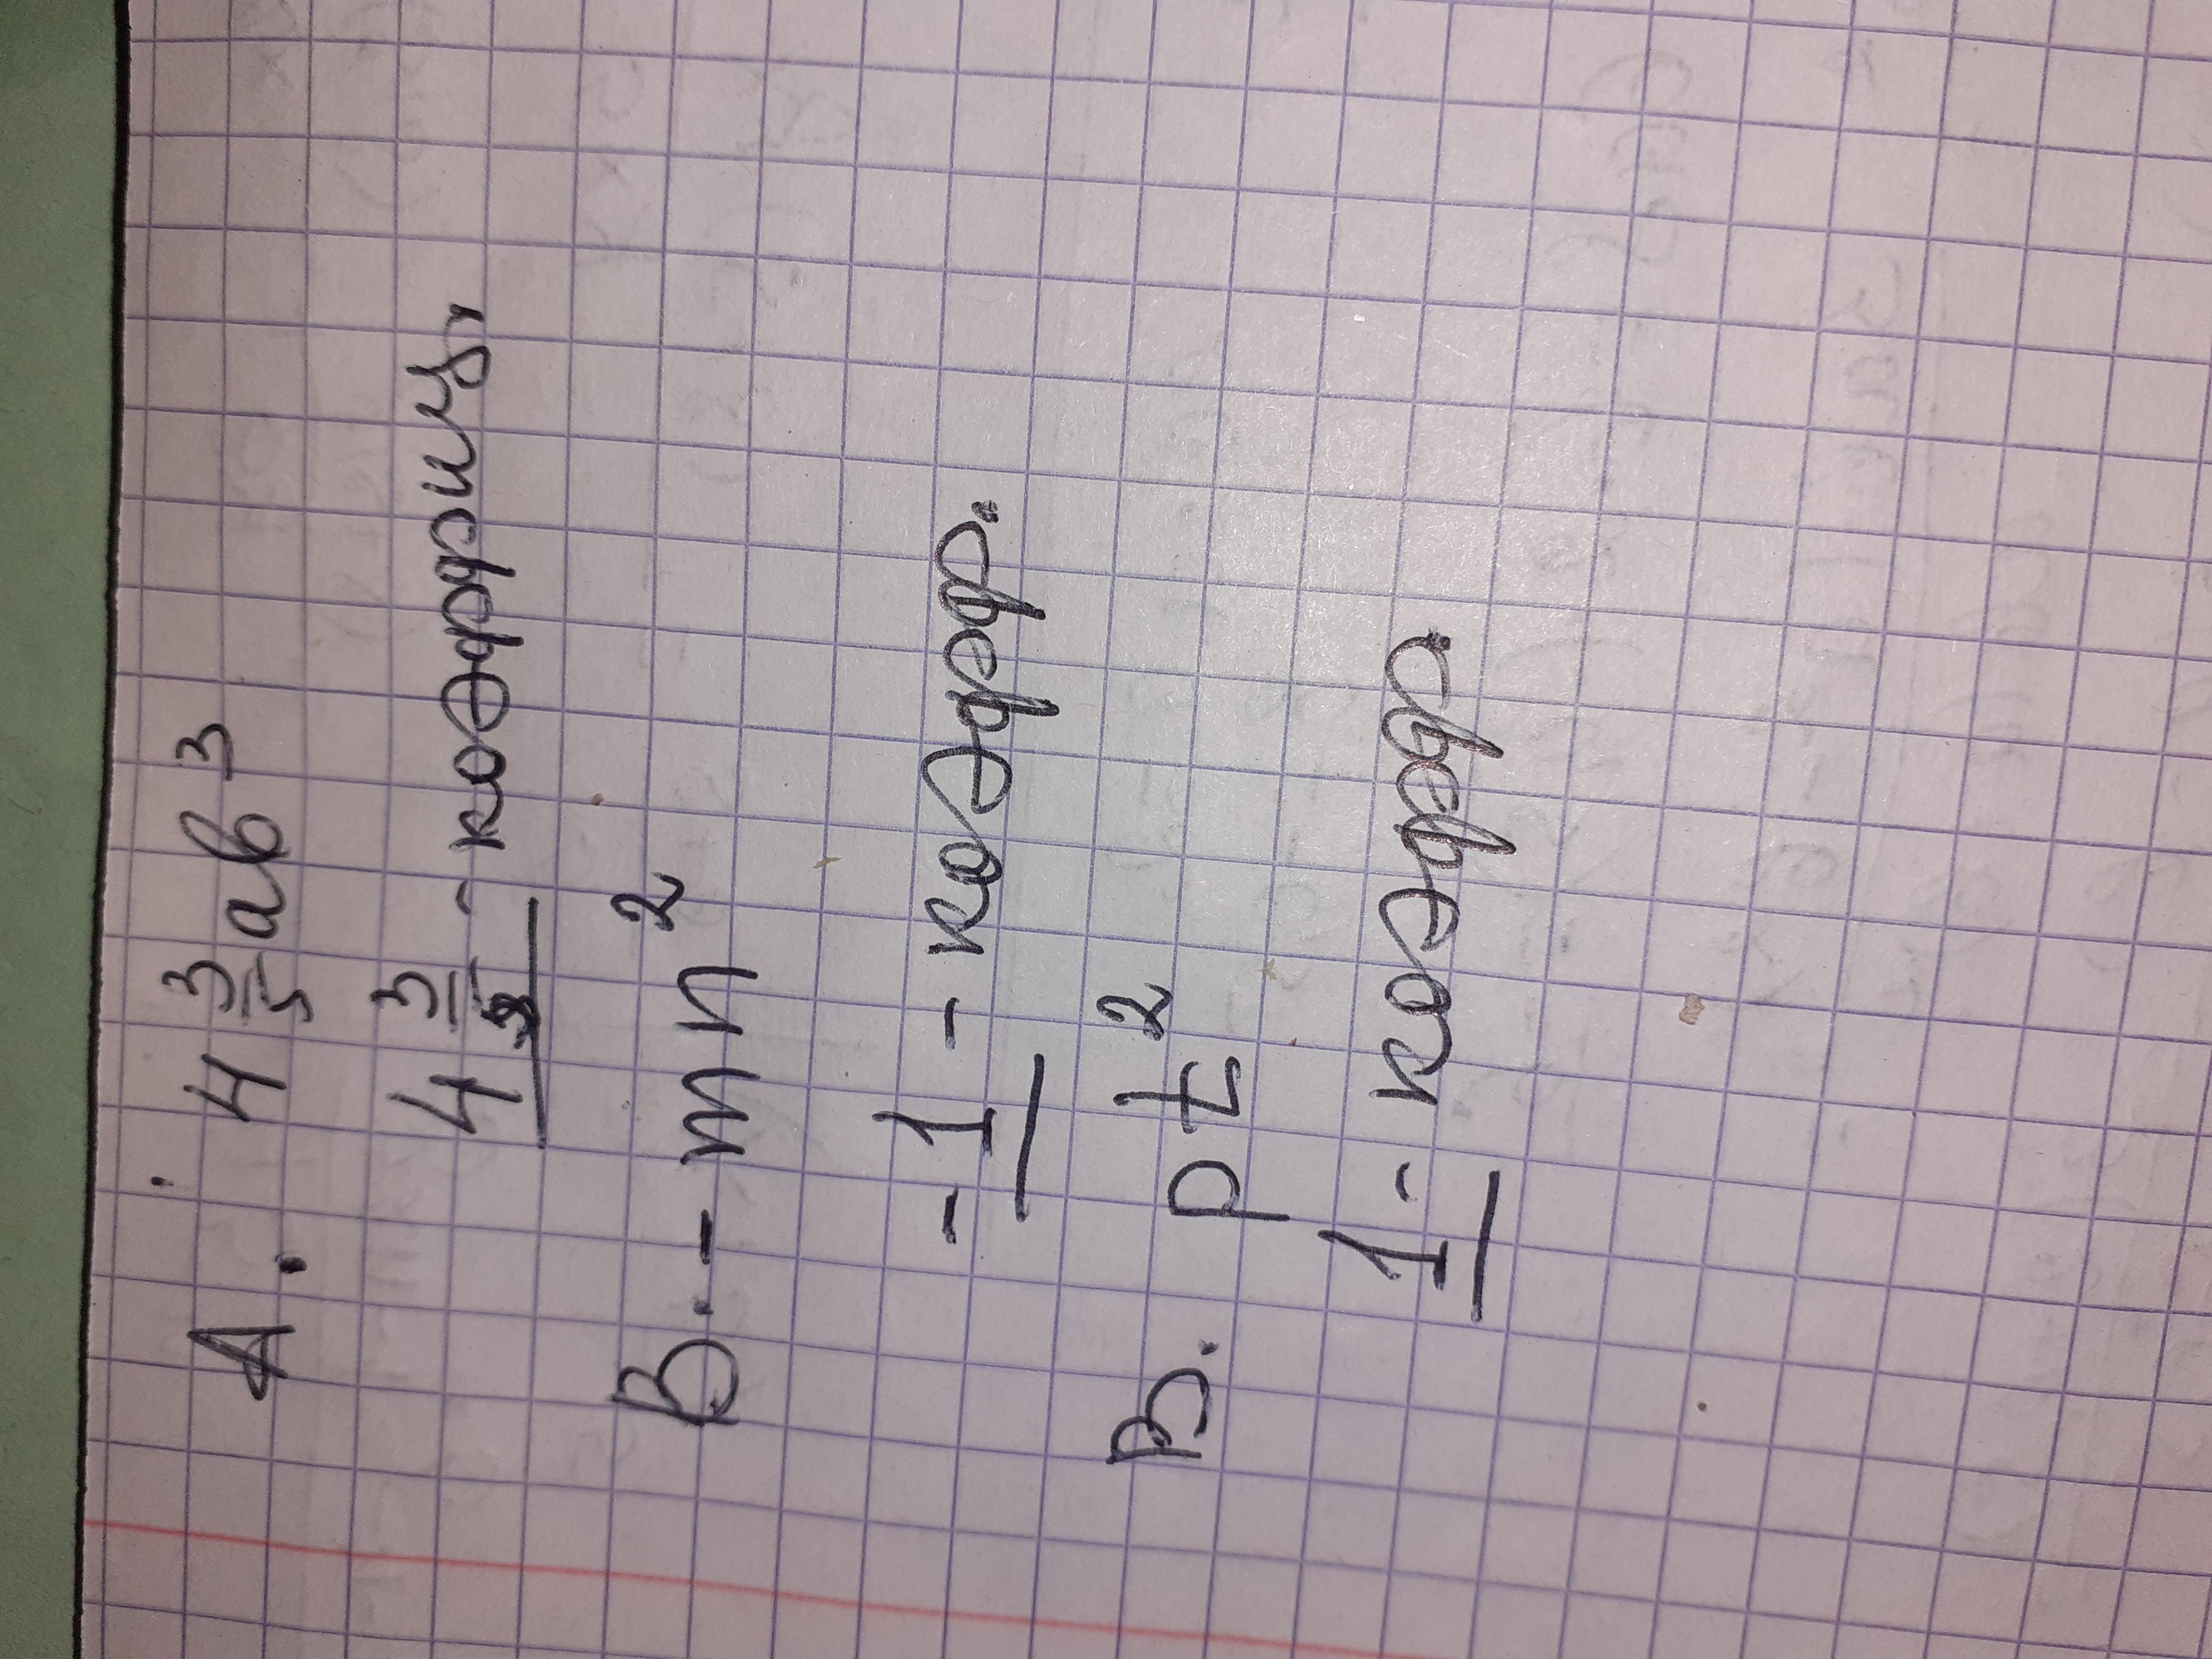 А. 4 3/5 ab³
4 3/5 - коэффиц.
В. - mn²
-1 - коэфф.
В. pt²
1 - коэфф.